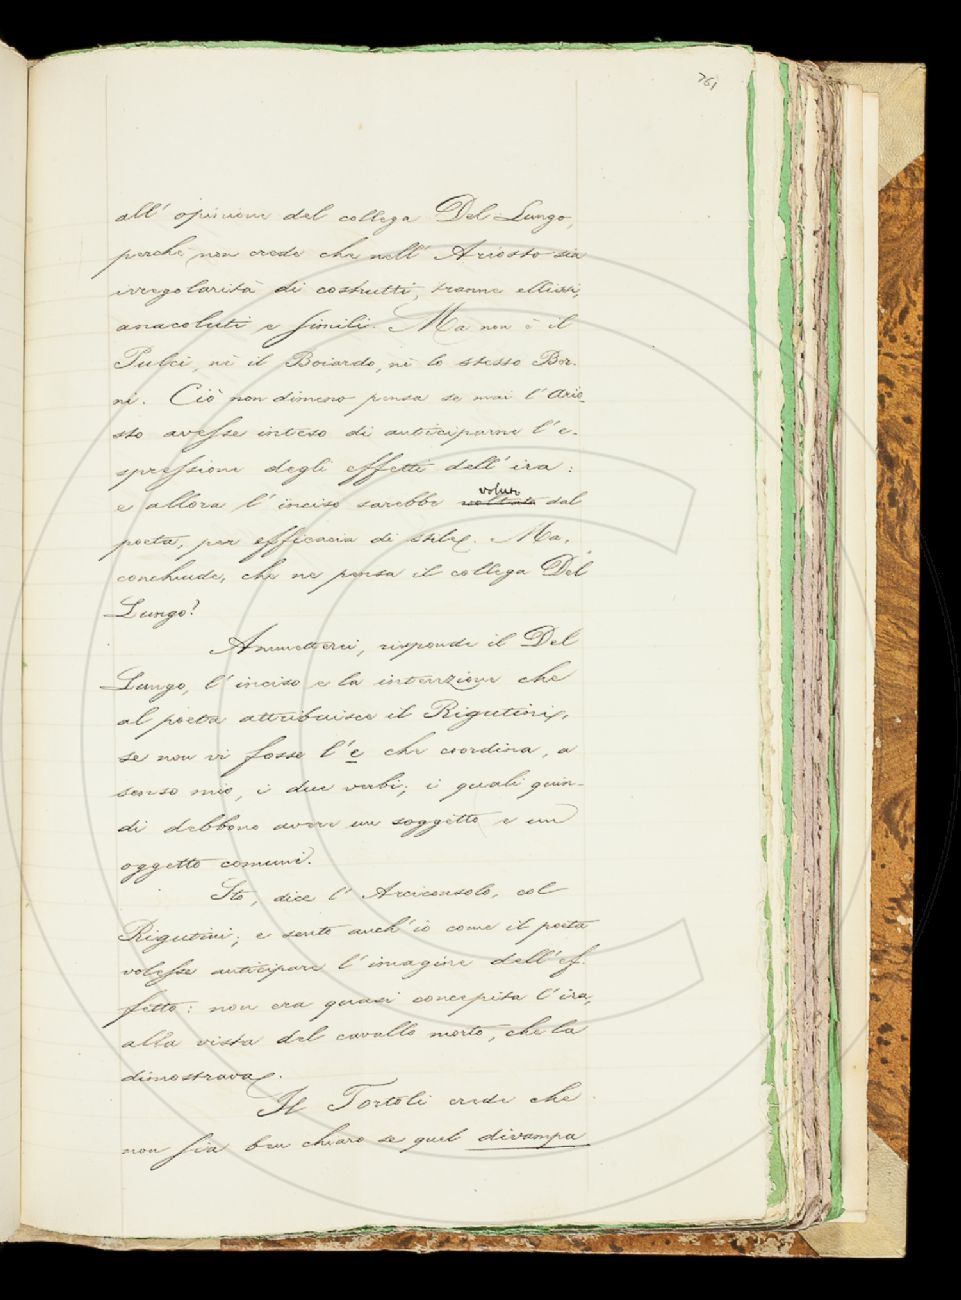 761
all' opinione del collega Del Lungo,
perchè non crede che nell' Ariosto sia
irregolarità di costrutti, tranne ellissi,
anacoluti e simili. Ma non è il
Pulci, nè il Boiardo, nè lo stesso Ber-
ni. Ciò non dimeno pensa se mai l' Ario-
sto avesse inteso di anticiparne l' e-
spressione degli effetti dell' ira:
e allora l' inciso sarebbe voluto dal
poeta, per efficacia di stile. Ma,
conchiude, che ne pensa il collega Del
Lungo?
Ammetterei, risponde il Del
Lungo, l' inciso e la intenzione che
al poeta attribuisce il Rigutini,
se non vi fosse l' e che coordina, a
senso mio, i due verbi; i quali quin-
di debbono avere un soggetto e un
oggetto comuni.
Sto, dice l' Arciconsolo, col
Rigutini; e sento anch' io come il poeta
volesse anticipare l' imagine dell' ef-
fetto: non era quasi concepita l' ira,
alla vista del cavallo morto, che la
dimostrava.
Il Tortoli crede che
non sia ben chiaro se quel divampa